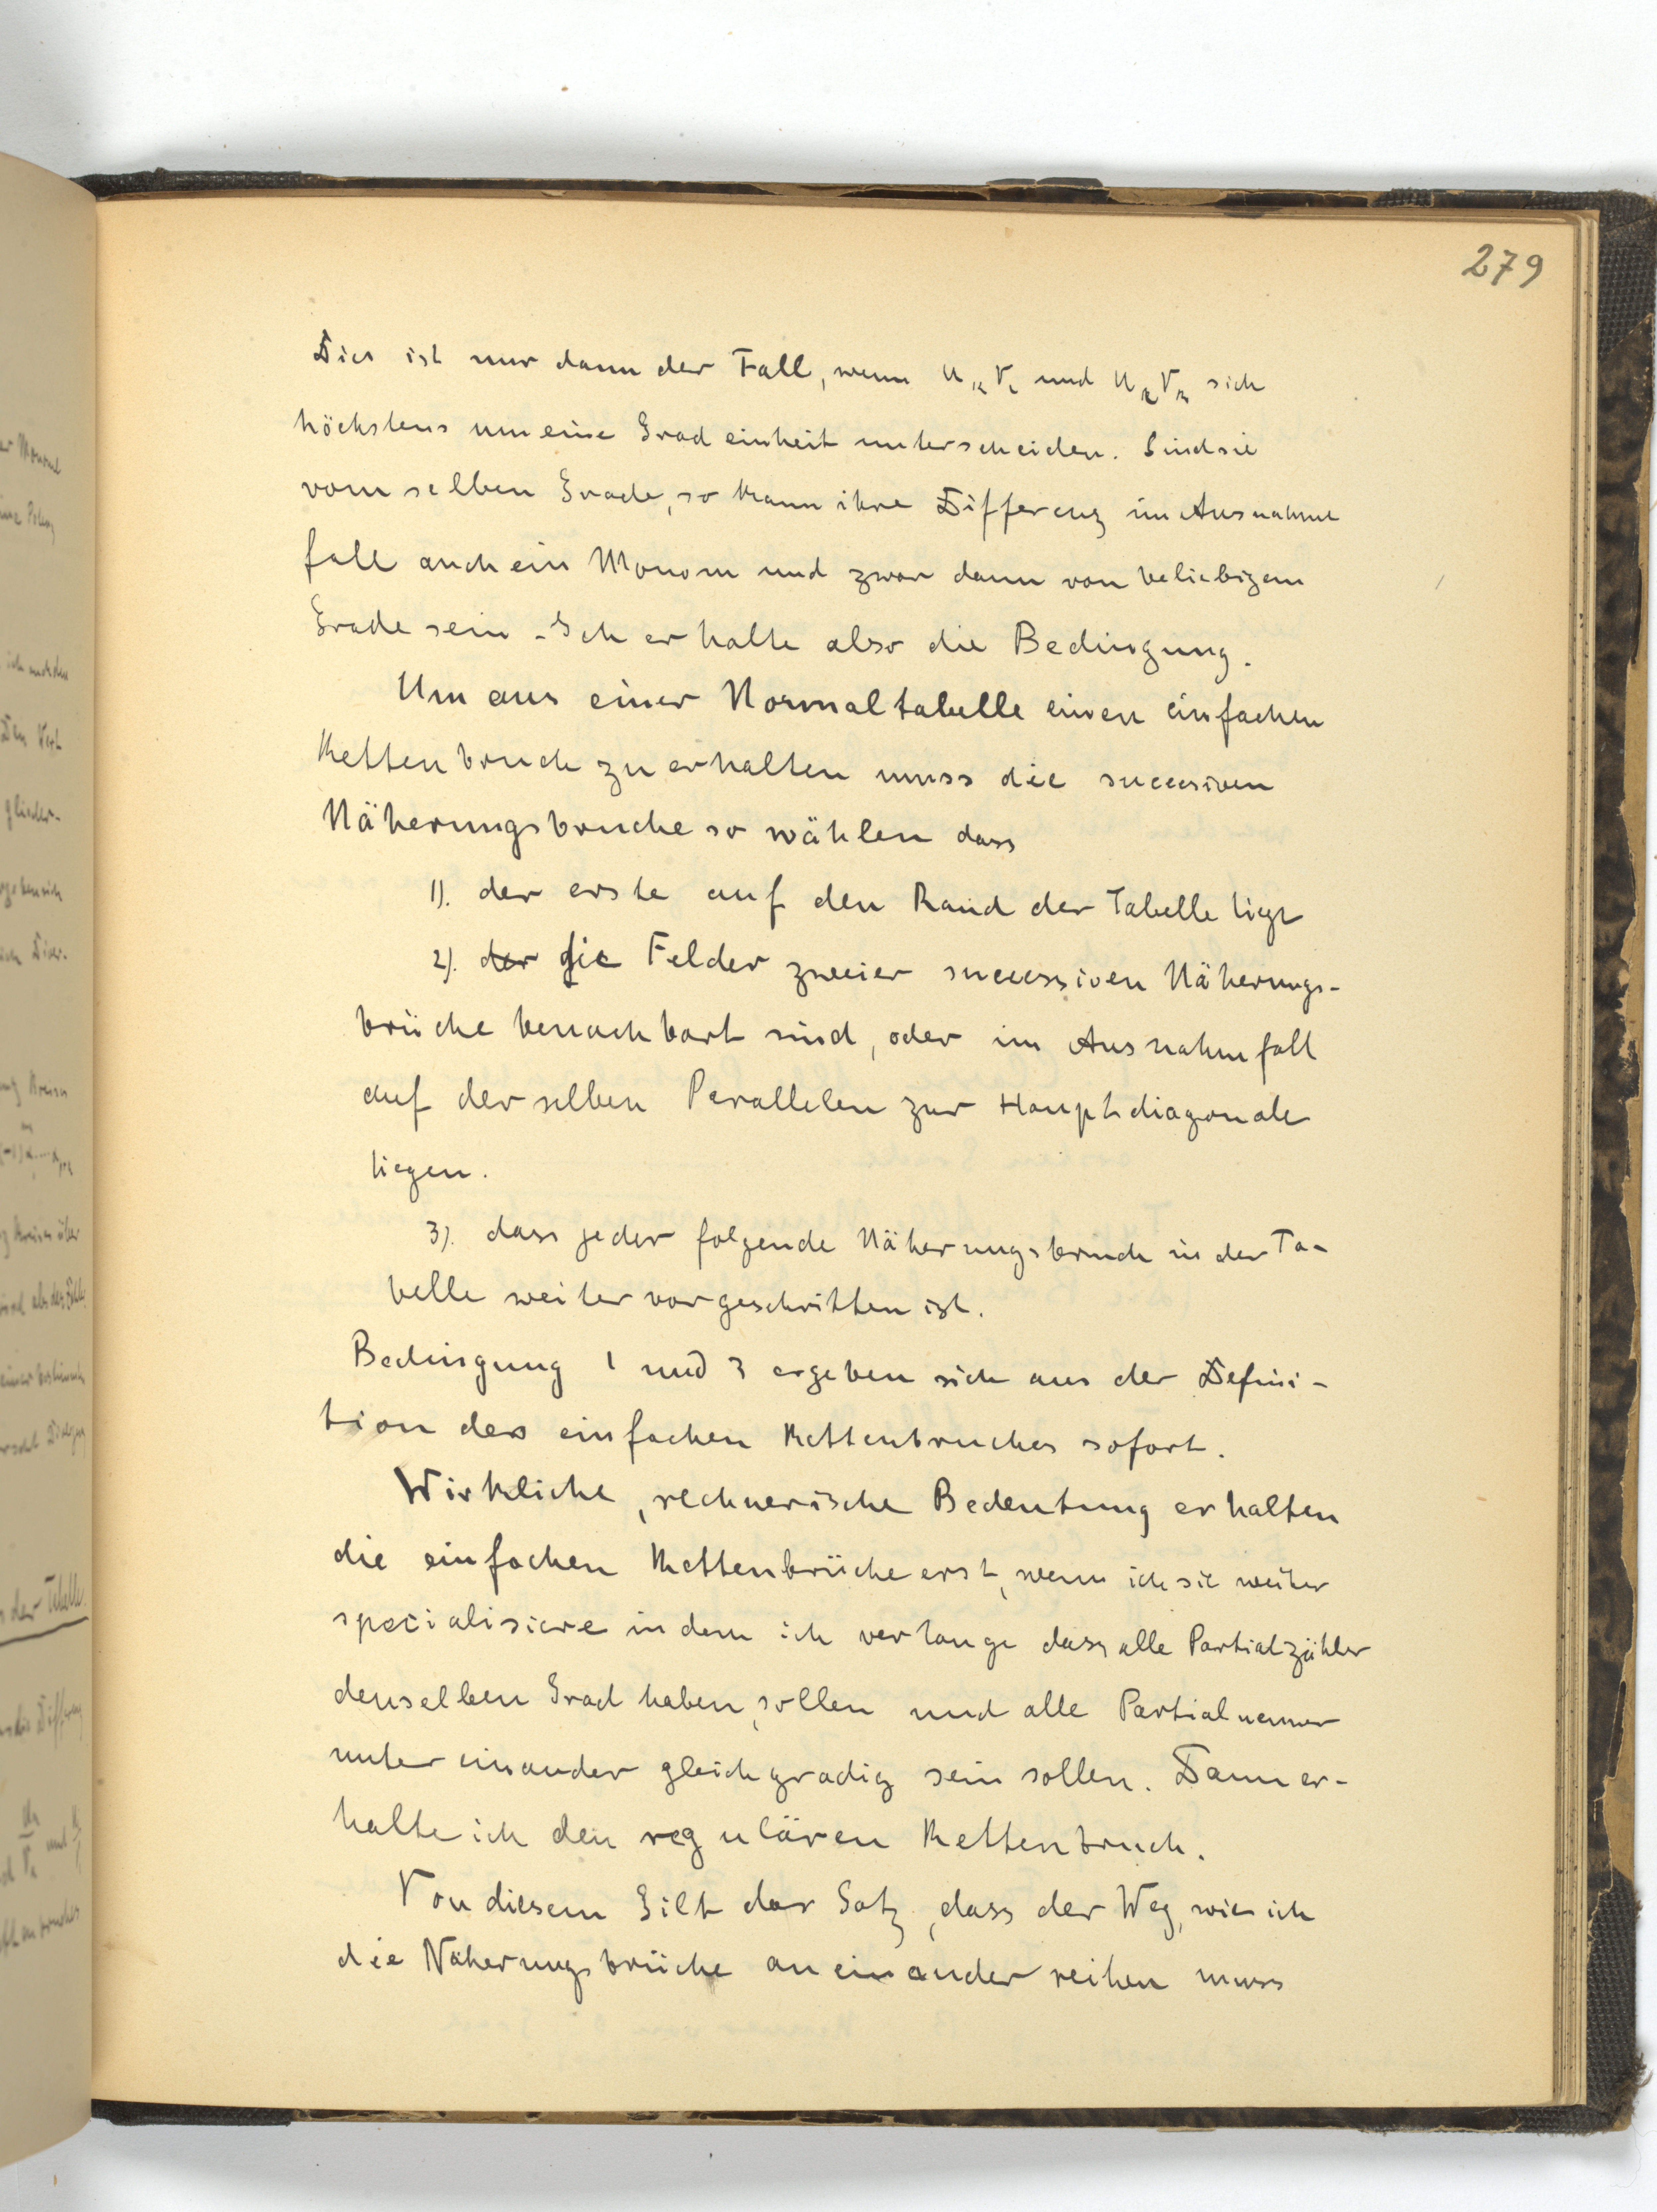 279
Dies ist nur dann der Fall, wenn U V und U V sich
höchstens um eine Grad einheit unterscheiden. Sind sie
vom selben Grade, so kann ihre Differenz im Ausnahme
fall auch ein Monom und zwar dann von beliebigem
Grade sein. Ich erhalte also die Bedingung.
Um aus einer Normaltabelle einen einfachen
Kettenbruch zu erhalten muss die succesiven
Näherungsbruche so wählen dass
1). der erste auf den Rand der Tabelle liegt
2). der die Felder zweier successiven Näherungs-
brüche benachbart sind, oder im Ausnahmfall
auf derselben Parallelen zur Hauptdiagonale
liegen.
3). dass jeder folgende Näherungsbruch in der Ta-
belle weiter vorgeschritten ist.
Bedingung 1 und 3 ergeben sich aus der Defini-
tion des einfachen Kettenbruches sofort.
Wirkliche, rechnerische Bedeutung erhalten
die einfachen Kettenbrüche erst, wenn ich sie weiter
specialisiere indem ich verlange dass alle Partialzähler
denselben Grad haben sollen und alle Partialnenner
unter einander gleichgradig sein sollen. Dann er-
halte ich den regulären Kettenbruch.
Von diesem Gilt der Satz, dass der Weg, wie ich
die Näherungsbrüche aneinander reihen muss